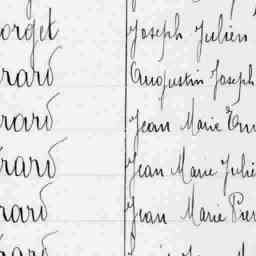 orget Joseph Julien
rard Augustin Joseph
rard Jean Marie
rard Jean Marie Julie
rard Jean Marie Pier
rard